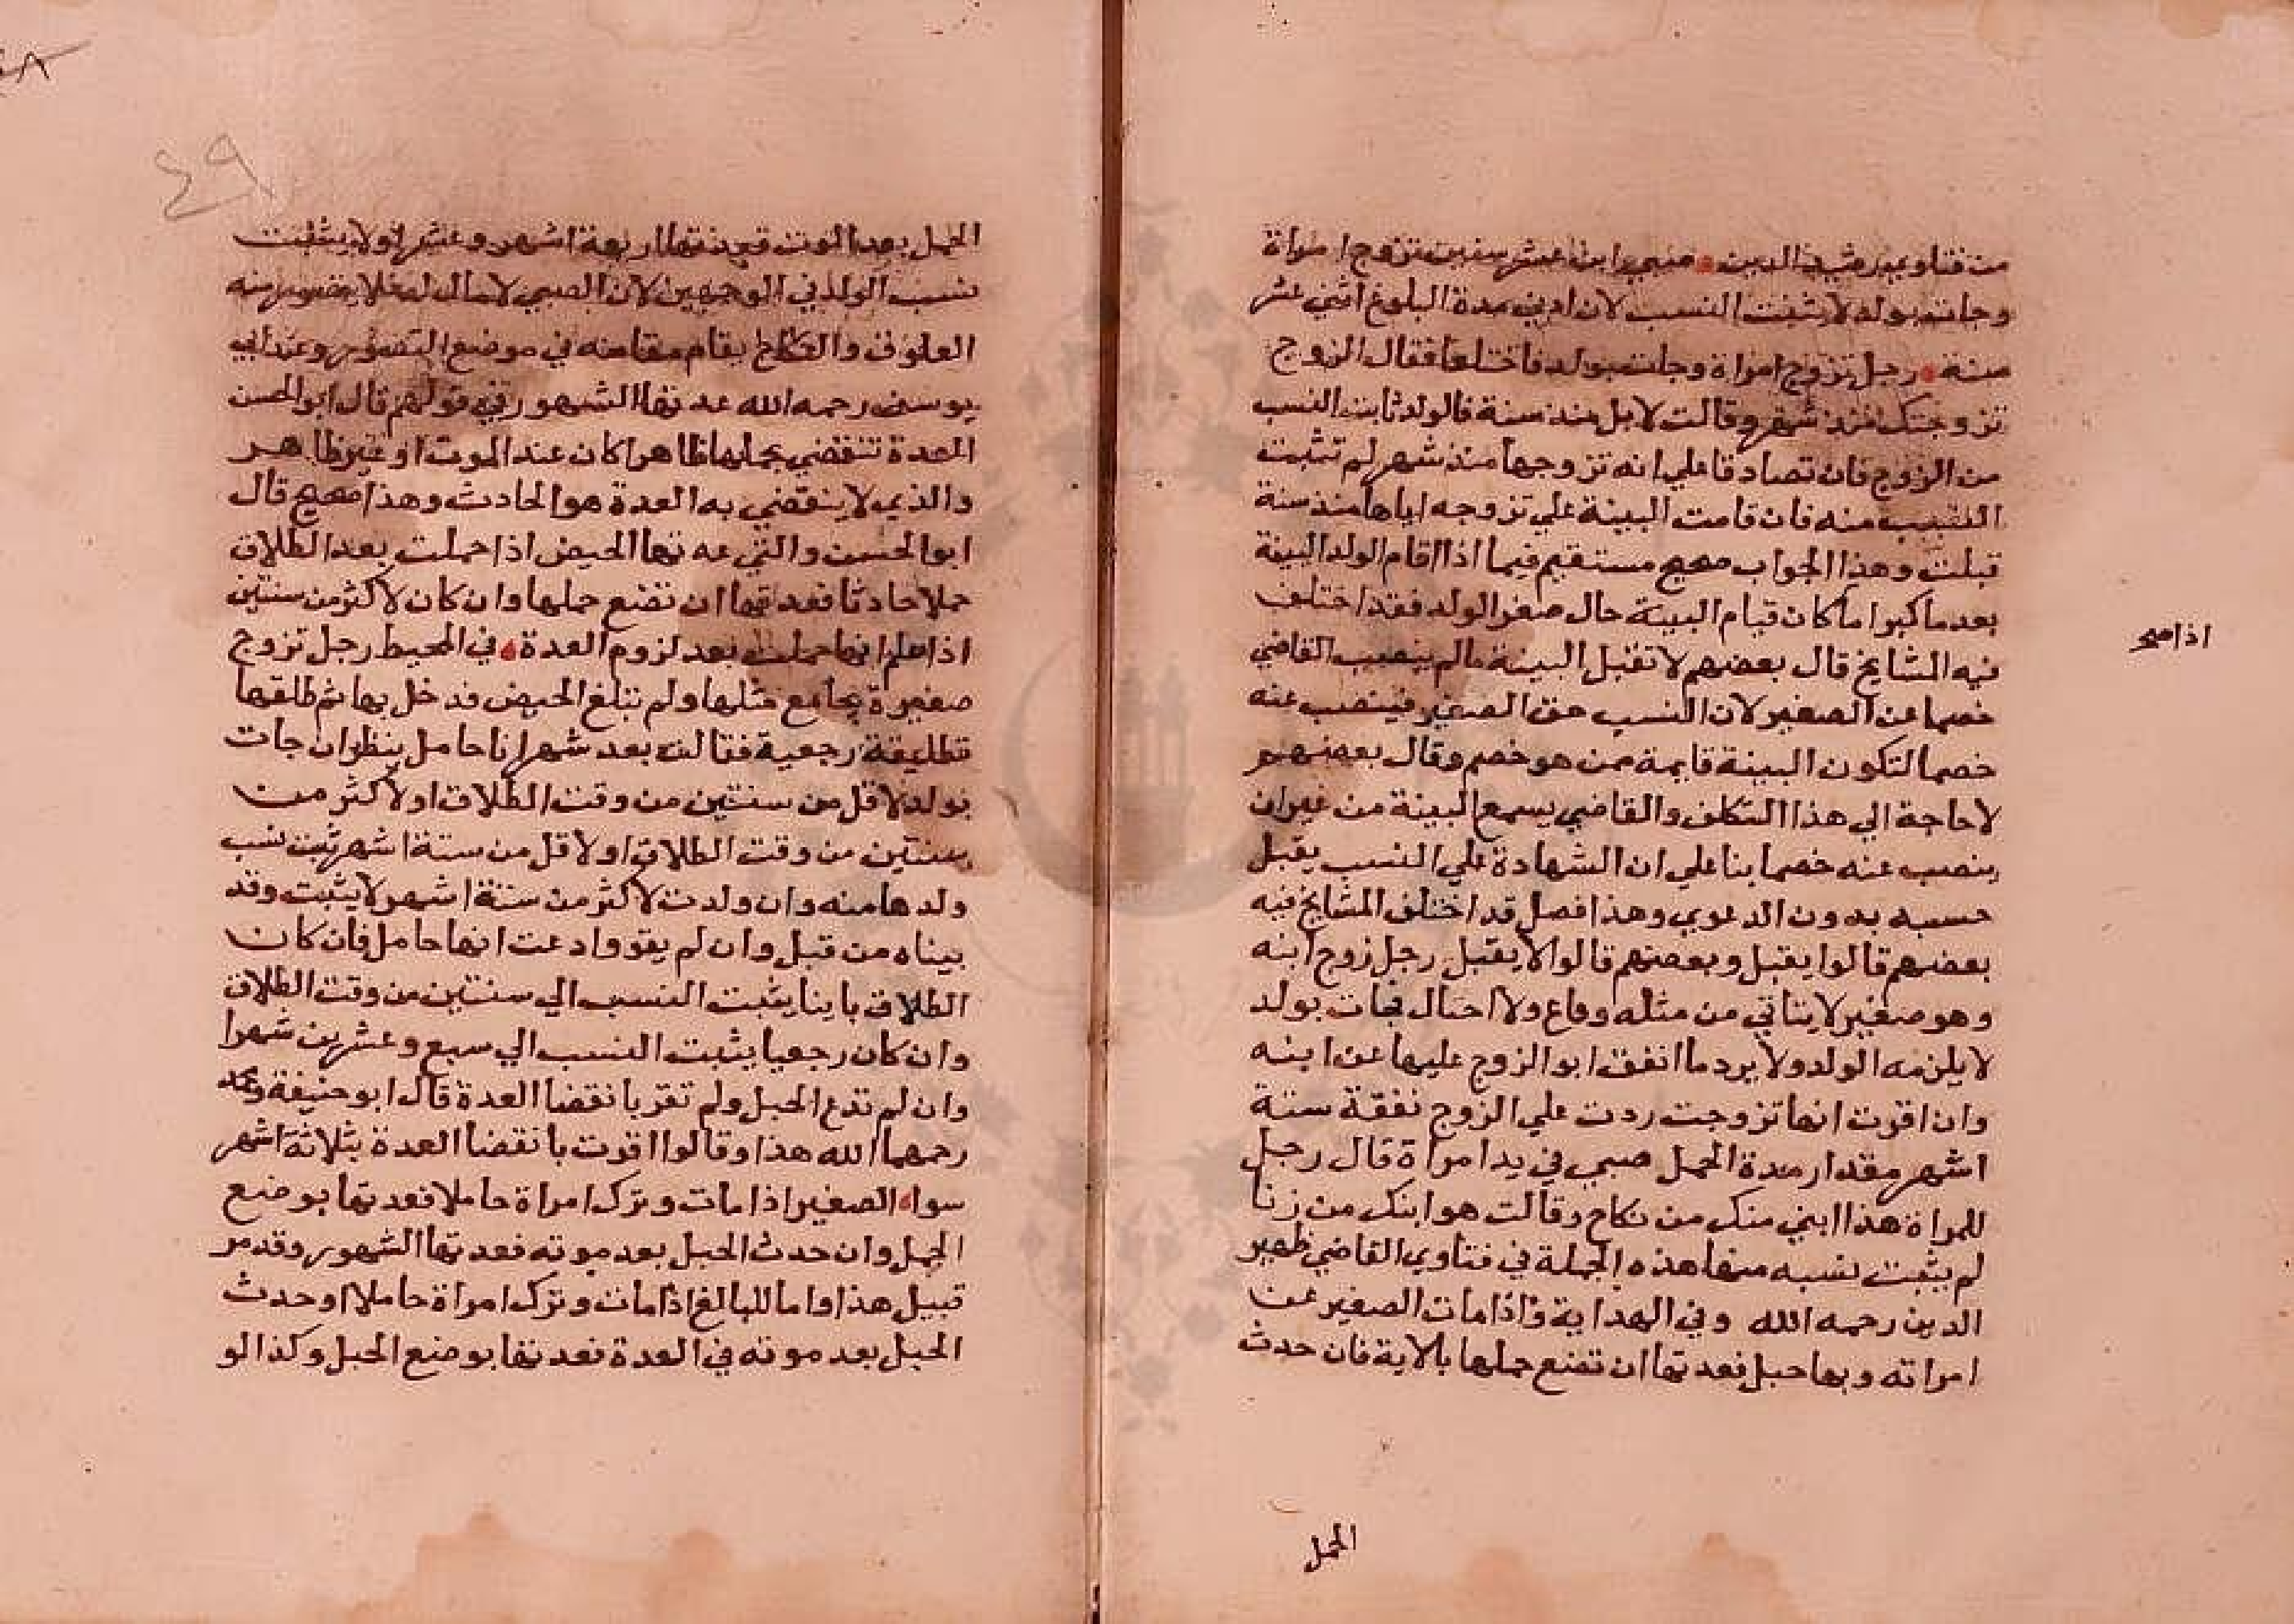 من فتاوي رشيد الدين صبي ابن عشر سنين تزوج امراة
وجات بولد لا يثبت النسب لان ادني مدة البلوغ اثني عشر
سنة رجل تزوج امراة وجات بولد فاختلفا فقال الزوج
تزوجتك منذ شهر وقالت لا بل منذ سنة فالولد ثابت النسب
من الزوج فان تصادقا علي انه تزوجها منذ شهر لم تثبت
النسب منه فان قامت البينة علي تزوجه اياها منذ سنة
قبلت وهذا الجواب صحيح مستقيم فيما اذا اقام الولد البينة
بعد ما كبر اما كان قيام البينة حال صغر الولد فقد اختلف
اذا صح
فيه المشايخ قال بعضهم لا تقبل البينة مالم ينصب القاضي
خصما عن الصغير لان النسب حق الصغير فينصب عنه
خصما لتكون البينة قايمة ممن هو خصم وقال بعضهم
لا حاجة الي هذا التكلف والقاضي يسمع البينة من غير ان
ينصب عنه خصما بنا علي ان الشهادة علي النسب يقبل
حسبه بدون الدعوي وهذا فصل قد اختلف المشايخ فيه
بعضهم قالوا يقبل وبعضهم قالوا لا يقبل رجل زوج ابنه
وهو صغير لا يتاتي من مثله وقاع ولا احبال فجات بولد
لا يلزمه الولد ولا يرد ما انفق ابو الزوج عليها عن ابنه
وان اقرت انها تزوجت ردت علي الزوج نفقة ستة
اشهر مقدار مدة الحمل صبي في يد امراة قال رجل
للمراة هذا ابني منك من نكاح وقالت هو ابنك من زنا
لم يثبت نسبه منها هذه الجملة في فتاوي القاضي ظهير
الدين رحمه الله وفي الهداية واذا مات الصغير عن
امراته وبها حبل فعدتها ان تضع حملها بالاية فان حدث
الحمل
الحمل بعد الموت فعدتها اربعة اشهر وعشرا ولا يثبت
نسب الولد في الوجهين لان الصبي لا ماء له فلا يتصور منه
العلوق والنكاح يقام مقامه في موضع التصور وعند ابي
يوسف رحمه الله عدتها الشهور وفي قولهم قال ابو الحسن
العدة تنقضي بحملها ظاهرا كان عند الموت او غير ظاهر
والذي لا ينقضي به العدة هو الحادث وهذا صحيح قال
ابو الحسن والتي عدتها الحيض اذا حملت بعد الطلاق
حملا حادثا فعدتها ان تضع حملها وان كان لاكثر من سنتين
اذا علم انها حملت بعد لزوم العدة في المحيط رجل تزوج
صغيرة يجامع مثلها ولم تبلغ الحيض فدخل بها ثم طلقها
تطليقة رجعية فقالت بعد شهر انا حامل ينظر ان جات
بولد لاقل من سنتين من وقت الطلاق او لاكثر من
سنتين من وقت الطلاق او لاقل من ستة اشهر يثبت نسب
ولدها منه وان ولدت لاكثر من ستة اشهر لا يثبت وقد
بيناه من قبل وان لم يقر وادعت انها حامل فان كان
الطلاق باينا يثبت النسب الي سنتين من وقت الطلاق
وان كان رجعيا يثبت النسب الي سبع وعشرين شهرا
وان لم تدع الحبل ولم تقر بانقضا العدة قال ابو حنيفة ومحمد
رحمهما الله هذا وقالوا اقرت بانقضا العدة بثلاثة اشهر
سوا الصغير اذا مات وترك امراة حاملا فعدتها بوضع
الحمل وان حدث الحبل بعد موته فعدتها الشهور وقد مر
قبيل هذا واما البالغ اذا مات وترك امراة حاملا او حدث
الحبل بعد موته في العدة فعدتها بوضع الحبل وكذا لو
٤٩